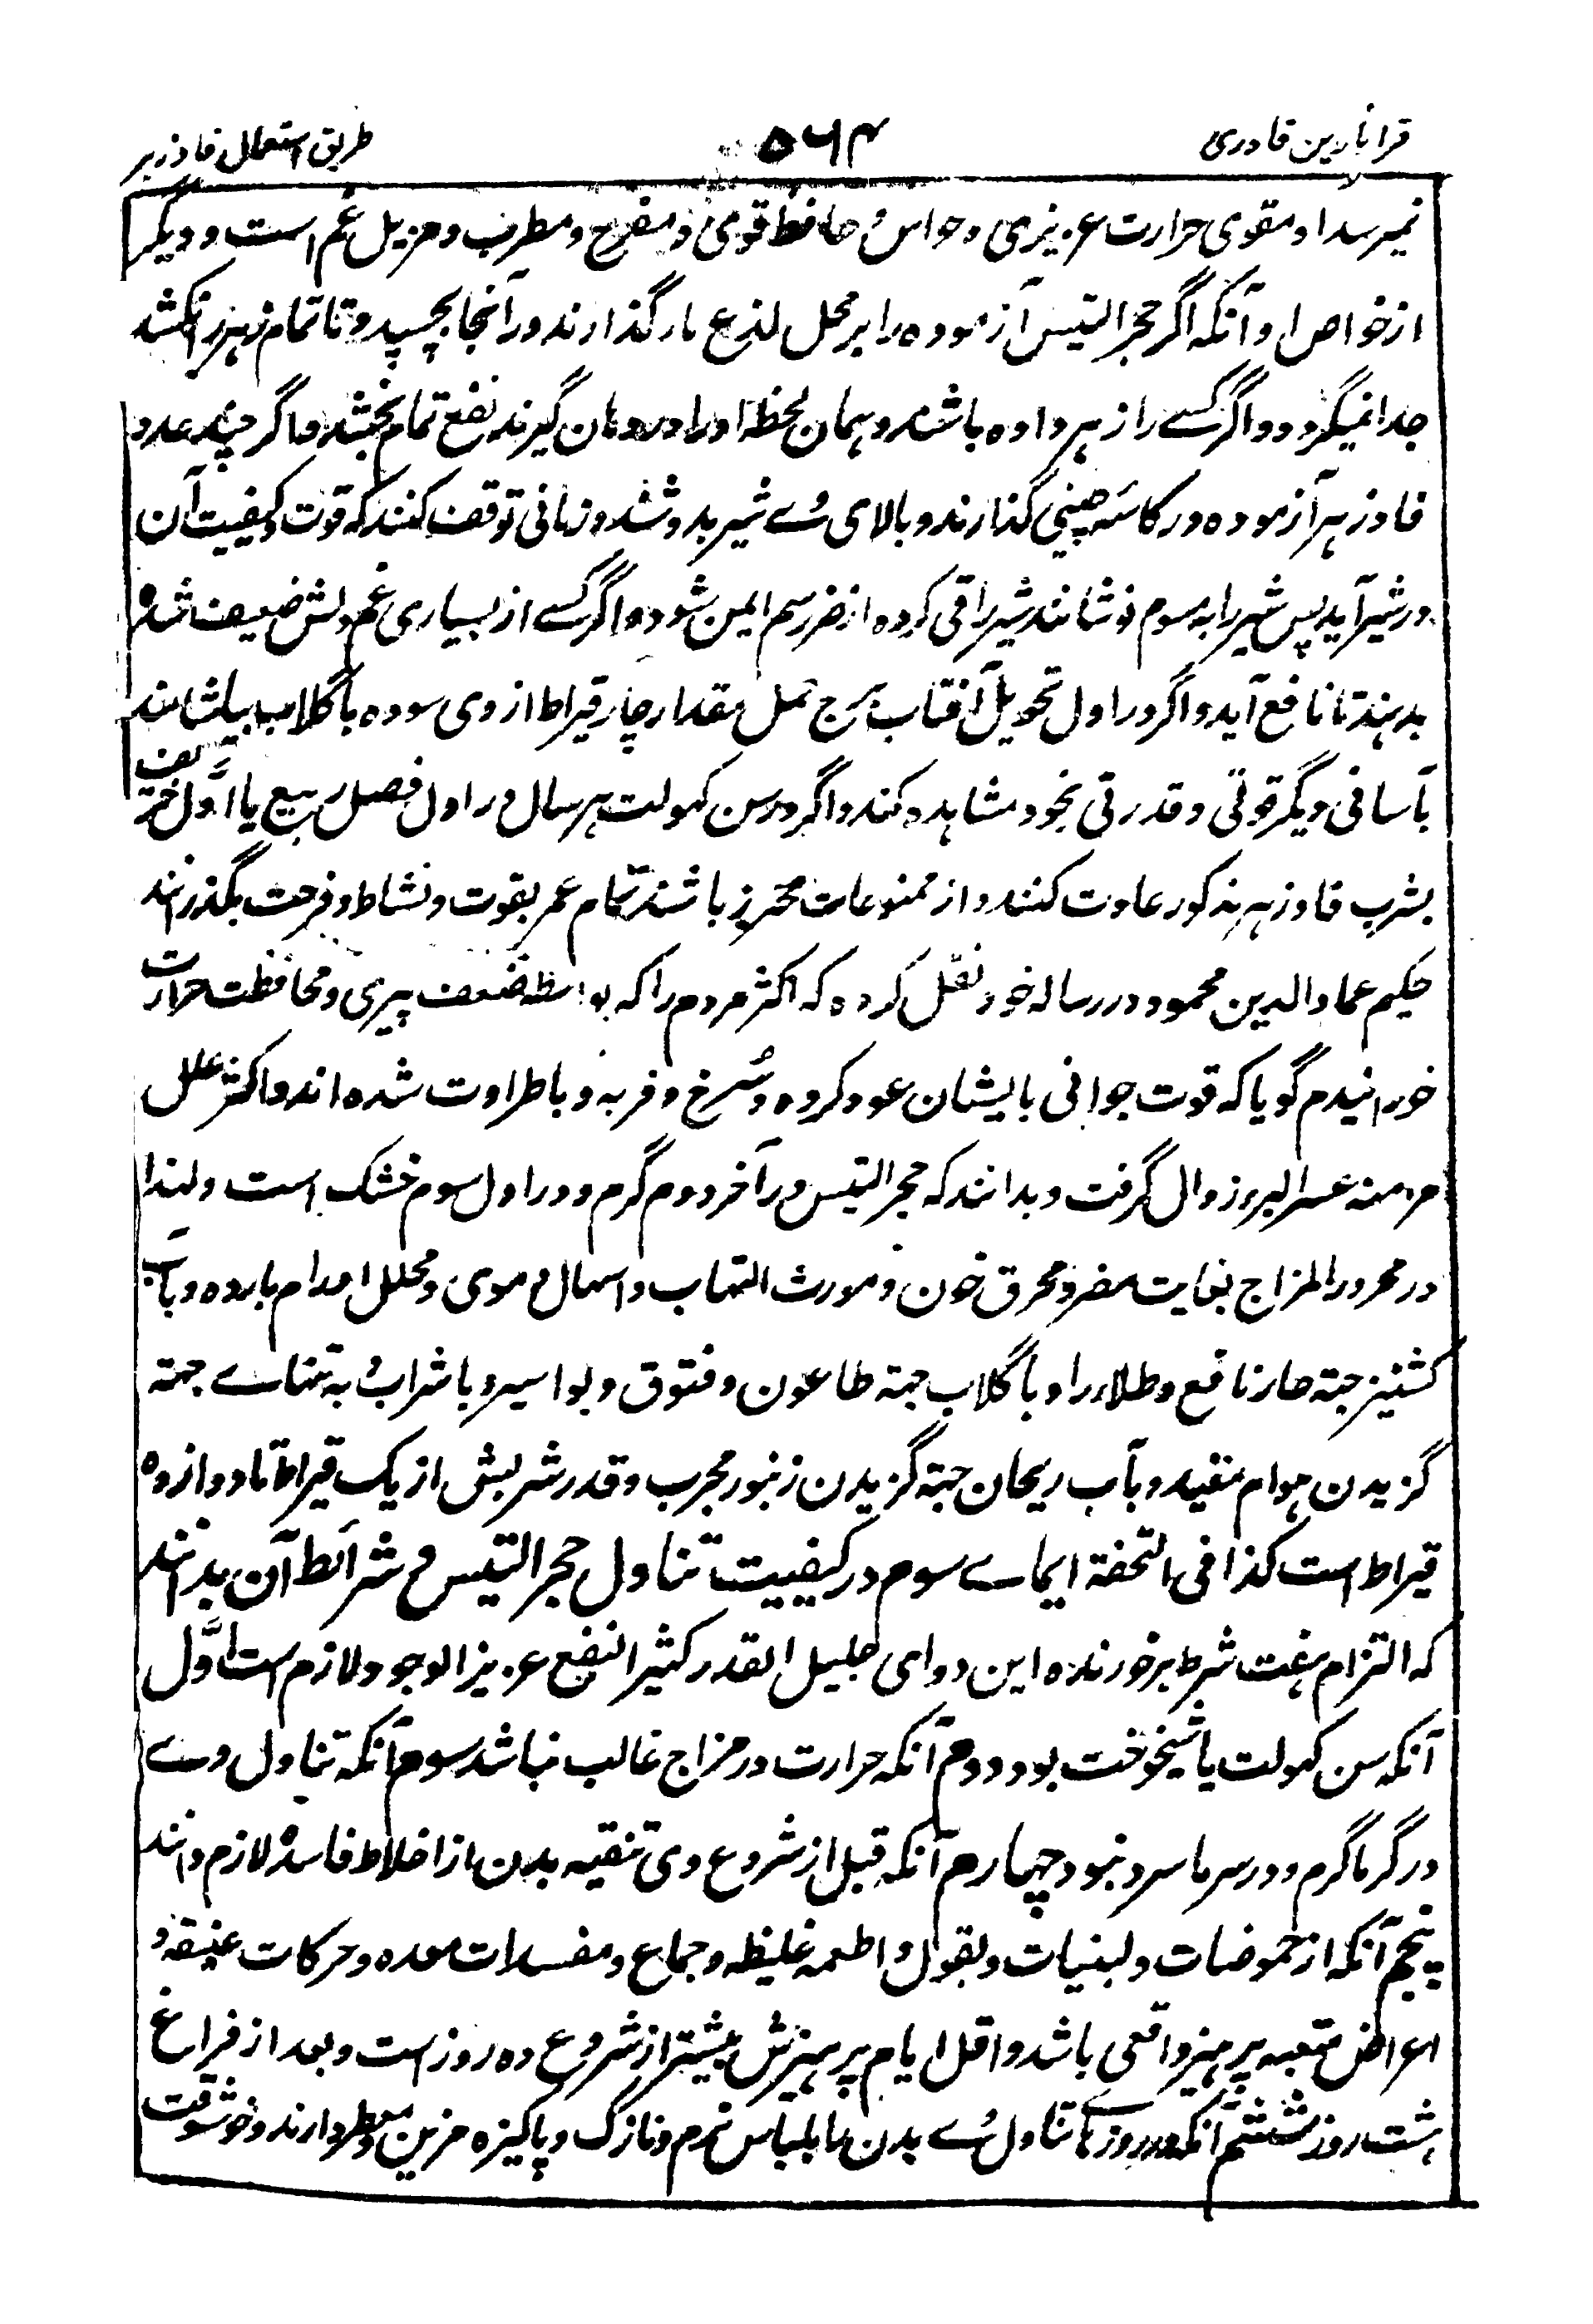 قرابادین قادری
۵۶۴
طریق استعمال فادزہر
نمیرسد او مقوی حرارت عزیزی و حواس و حافظ قوی و مفرح و مطرب و مزیل غم است و دیگر
از خواص او آنکہ اگر حجر التیس آزمودہ را بر محل لذع مار گذارند در آنجا بچسپد و تا تمام زہر را نکشد
جدا نمیگردد و اگر کسے را زہر دادہ باشند و ہمان لحظہ او را در دہان گیرند نفع تمام بخشد و اگر چند عدد
فادزہر آزمودہ در کاسہ چینی گذارند و بالای وے شیر بدوشند و زمانی توقف کنند کہ قوت و کیفیت آن
در شیر آید پس شیر را بہ مسموم نوشانند شیر را قی کردہ از ضرر سم ایمن شود و اگر کسے از بسیاری غم دلش ضعیف شدہ
بدہند تا نافع آید و اگر در اول تحویل آفتاب ببرج حمل مقدار چار قیراط از وی سودہ با گلاب بیاشامند
تا سافی دیگر قوتی و قدرتی بخود مشاہدہ کند و اگر در سن کہولت ہر سال در اول فصل ربیع یا اول خریف
بشرب فادزہر مذکور عادت کنند و از ممنوعات محترز باشند تمام عمر بقوت و نشاط و فرحت بگذرانند
حکیم عماد الدین محمود در رسالہ خود نقل کردہ کہ اکثر مردم را کہ بواسطہ ضعف پیری و محافظت حرارت
خورانیدم گویا کہ قوت جوانی بایشان عود کردہ و سرخ و فربہ و با طراوت شدہ اند و اکثر علل
مزمنہ عسر البرء زوال گرفت و بدانند کہ حجر التیس در آخر دوم گرم و در اول سوم خشک است و لہذا
در محرور المزاج بغایت مضر و محرق خون و مورث التہاب و اسہال دموی و محلل اورام باردہ و بآب
کشنیز جہتہ حار نافع و طلاء او با گلاب جہتہ طاعون و فتوق و بواسیر و با شراب بہ تنہائے جہتہ
گزیدن ہوام مفید و بآب ریحان جہتہ گزیدن زنبور مجرب و قدر شربتش از یک قیراط تا دوازدہ
قیراط است کذا فی التحفة ایماے سوم در کیفیت تناول حجر التیس و شرائط آن بدانند
کہ التزام ہفت شرط بر خورندہ این دوای جلیل القدر کثیر النفع عزیز الوجود لازم است اوّل
آنکہ سن کہولت یا شیخوخت بود دوم آنکہ حرارت در مزاج غالب نباشد سوم آنکہ تناول وے
در گرما گرم و در سرما سرد نبود چہارم آنکہ قبل از شروع وی تنقیہ بدن از اخلاط فاسدہ لازم دانند
پنجم آنکہ از حموضات و لبنیات و بقول و اطعمہ غلیظہ و جماع و مفسدات معدہ و حرکات عنیفہ و
اعراض متعبہ پرہیز واقعی باشد و اقل ایام پرہیزش پیشتر از شروع دہ روز است و بعد از فراغ
ہشت روز ششم آنکہ در روزہاے تناول وے بدن را بلباس نرم و نازک و پاکیزہ مزین و معطر دارند و خوشوقت